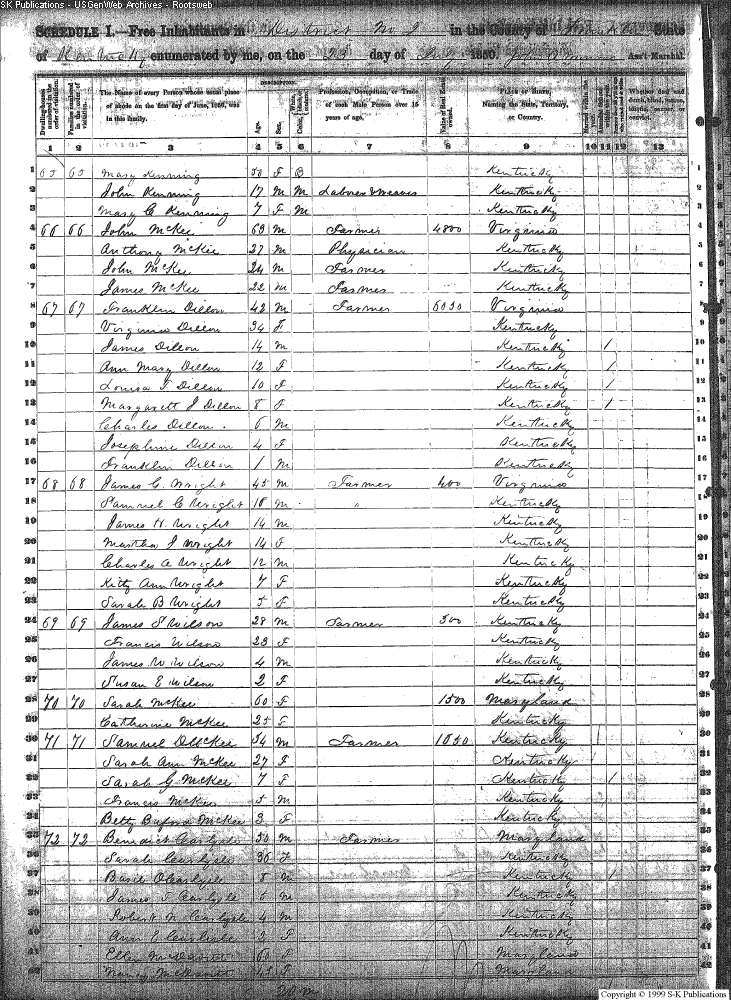 SK Publications - USGenWeb Archives - Rootsweb
SCHEDULE I.—Free Inhabitants in District No 1 in the County of Franklin State
of Kentucky enumerated by me, on the 23 day of 1850. Ass't Marshal.
Dwelling-houses numbered in the order of visitation.
Families numbered in the order of visitation.
The Name of every Person whose usual place of abode on the first day of June, 1850, was in this family.
DESCRIPTION.
Age.
Sex.
Profession, Occupation, or Trade of each Male Person over 15 years of age.
Value of Real Estate owned.
Place of Birth, Naming the State, Territory, or Country.
Whether deaf and dumb, blind, insane, idiotic, pauper, or convict.
1 2 3 4 5 6 7 8 9 10 11 12 13
1 65 65 Mary 50 F B Kentucky 1
2 John 17 M M Laborer Weaver Kentucky 2
3 Mary C 7 F M Kentucky 3
4 66 66 John McKee 69 M Farmer 4800 Virginia 4
5 Anthony McKee 27 M Physician Kentucky 5
6 John McKee 24 M Farmer Kentucky 6
7 James McKee 22 M Farmer Kentucky 7
8 67 67 Franklin Dillon 42 M Farmer Virginia 8
9 Virginia Dillon 34 F Kentucky 9
10 James Dillon 14 M Kentucky 1 10
11 Ann Mary Dillon 12 F Kentucky 1 11
12 Louisa F Dillon 10 F Kentucky 1 12
13 Margarett J Dillon 8 F Kentucky 1 13
14 Charles Dillon 6 M Kentucky 14
15 Josephine Dillon 4 F Kentucky 15
16 Franklin Dillon 1 M Kentucky 16
17 68 68 James C. Wright 45 M Farmer 400 Virginia 17
18 Samuel C Wright M " Kentucky 18
19 James H Wright 14 M Kentucky 19
20 Martha J Wright 14 F Kentucky 20
21 Charles A Wright 12 M Kentucky 21
22 Kitty Ann Wright 7 F Kentucky 22
23 Sarah B Wright 5 F Kentucky 23
24 69 69 James S Wilson 28 M Farmer 500 Kentucky 24
25 Francis Wilson 23 F Kentucky 25
26 James W Wilson 4 M Kentucky 26
27 Susan E Wilson 2 F Kentucky 27
28 70 70 Sarah McKee 60 F 1500 Maryland 28
29 Catherine McKee 25 F Kentucky 29
30 71 71 Samuel D McKee 34 M Farmer Kentucky 30
31 Sarah Ann McKee 27 F Kentucky 31
32 Sarah G McKee 7 F Kentucky 1 32
33 Francis McKee 5 M Kentucky 33
34 Betty Buford McKee 3 F Kentucky 34
35 72 72 Benedict Carlyle 50 M Farmer Maryland 35
36 Sarah Carlyle 36 F Kentucky 36
37 Basil Carlyle 8 M Kentucky 1 37
38 James Carlyle 6 M Kentucky 38
39 Robert N Carlyle 4 M Kentucky 39
40 Ann E Carlyle 2 F Kentucky 40
41 60 F Maryland 41
42 Nancy F Maryland 42
Copyright © 1999 S-K Publications